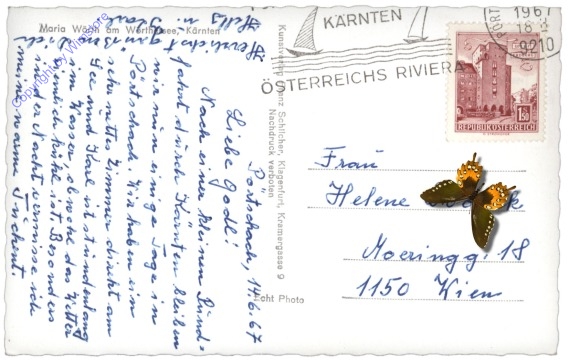 Maria Wörth am Wörthersee, Kärnten
Pörtschach, 14.6.67
Liebe Godl!
Nach einer kleinen Rund-
fahrt durch Kärnten bleiben
wir nun einige Tage in
Pörtschach. Wir haben ein
sehr nettes Zimmer direkt am
See und Karl ist stundenlang
im Wasser, obwohl das Wetter
ziemlich kühl ist. Besonders
in der Nacht vermisse ich
meine warme Tuchent.
Herzlichst
Helli u. Karl
Kunstverlag Franz Schilcher, Klagenfurt, Kramergasse 9
Nachdruck verboten
Echt Photo
KÄRNTEN
ÖSTERREICHS RIVIERA
1967
18
9210
1.50
REPUBLIK ÖSTERREICH
Frau
Helene
Moeringg. 18
1150 Wien
Copyright by